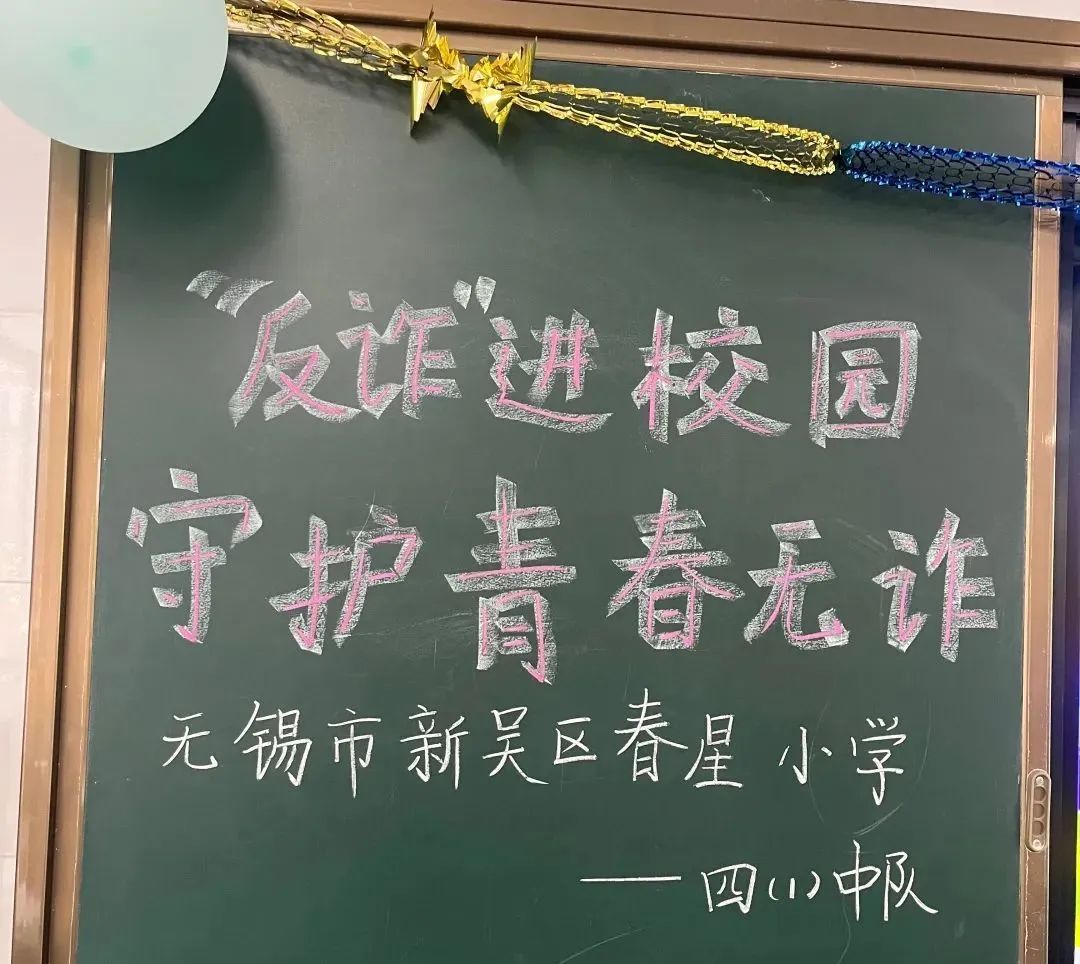 “反诈”进校园
守护青春无诈
无锡市新吴区春星小学
——四(1)中队